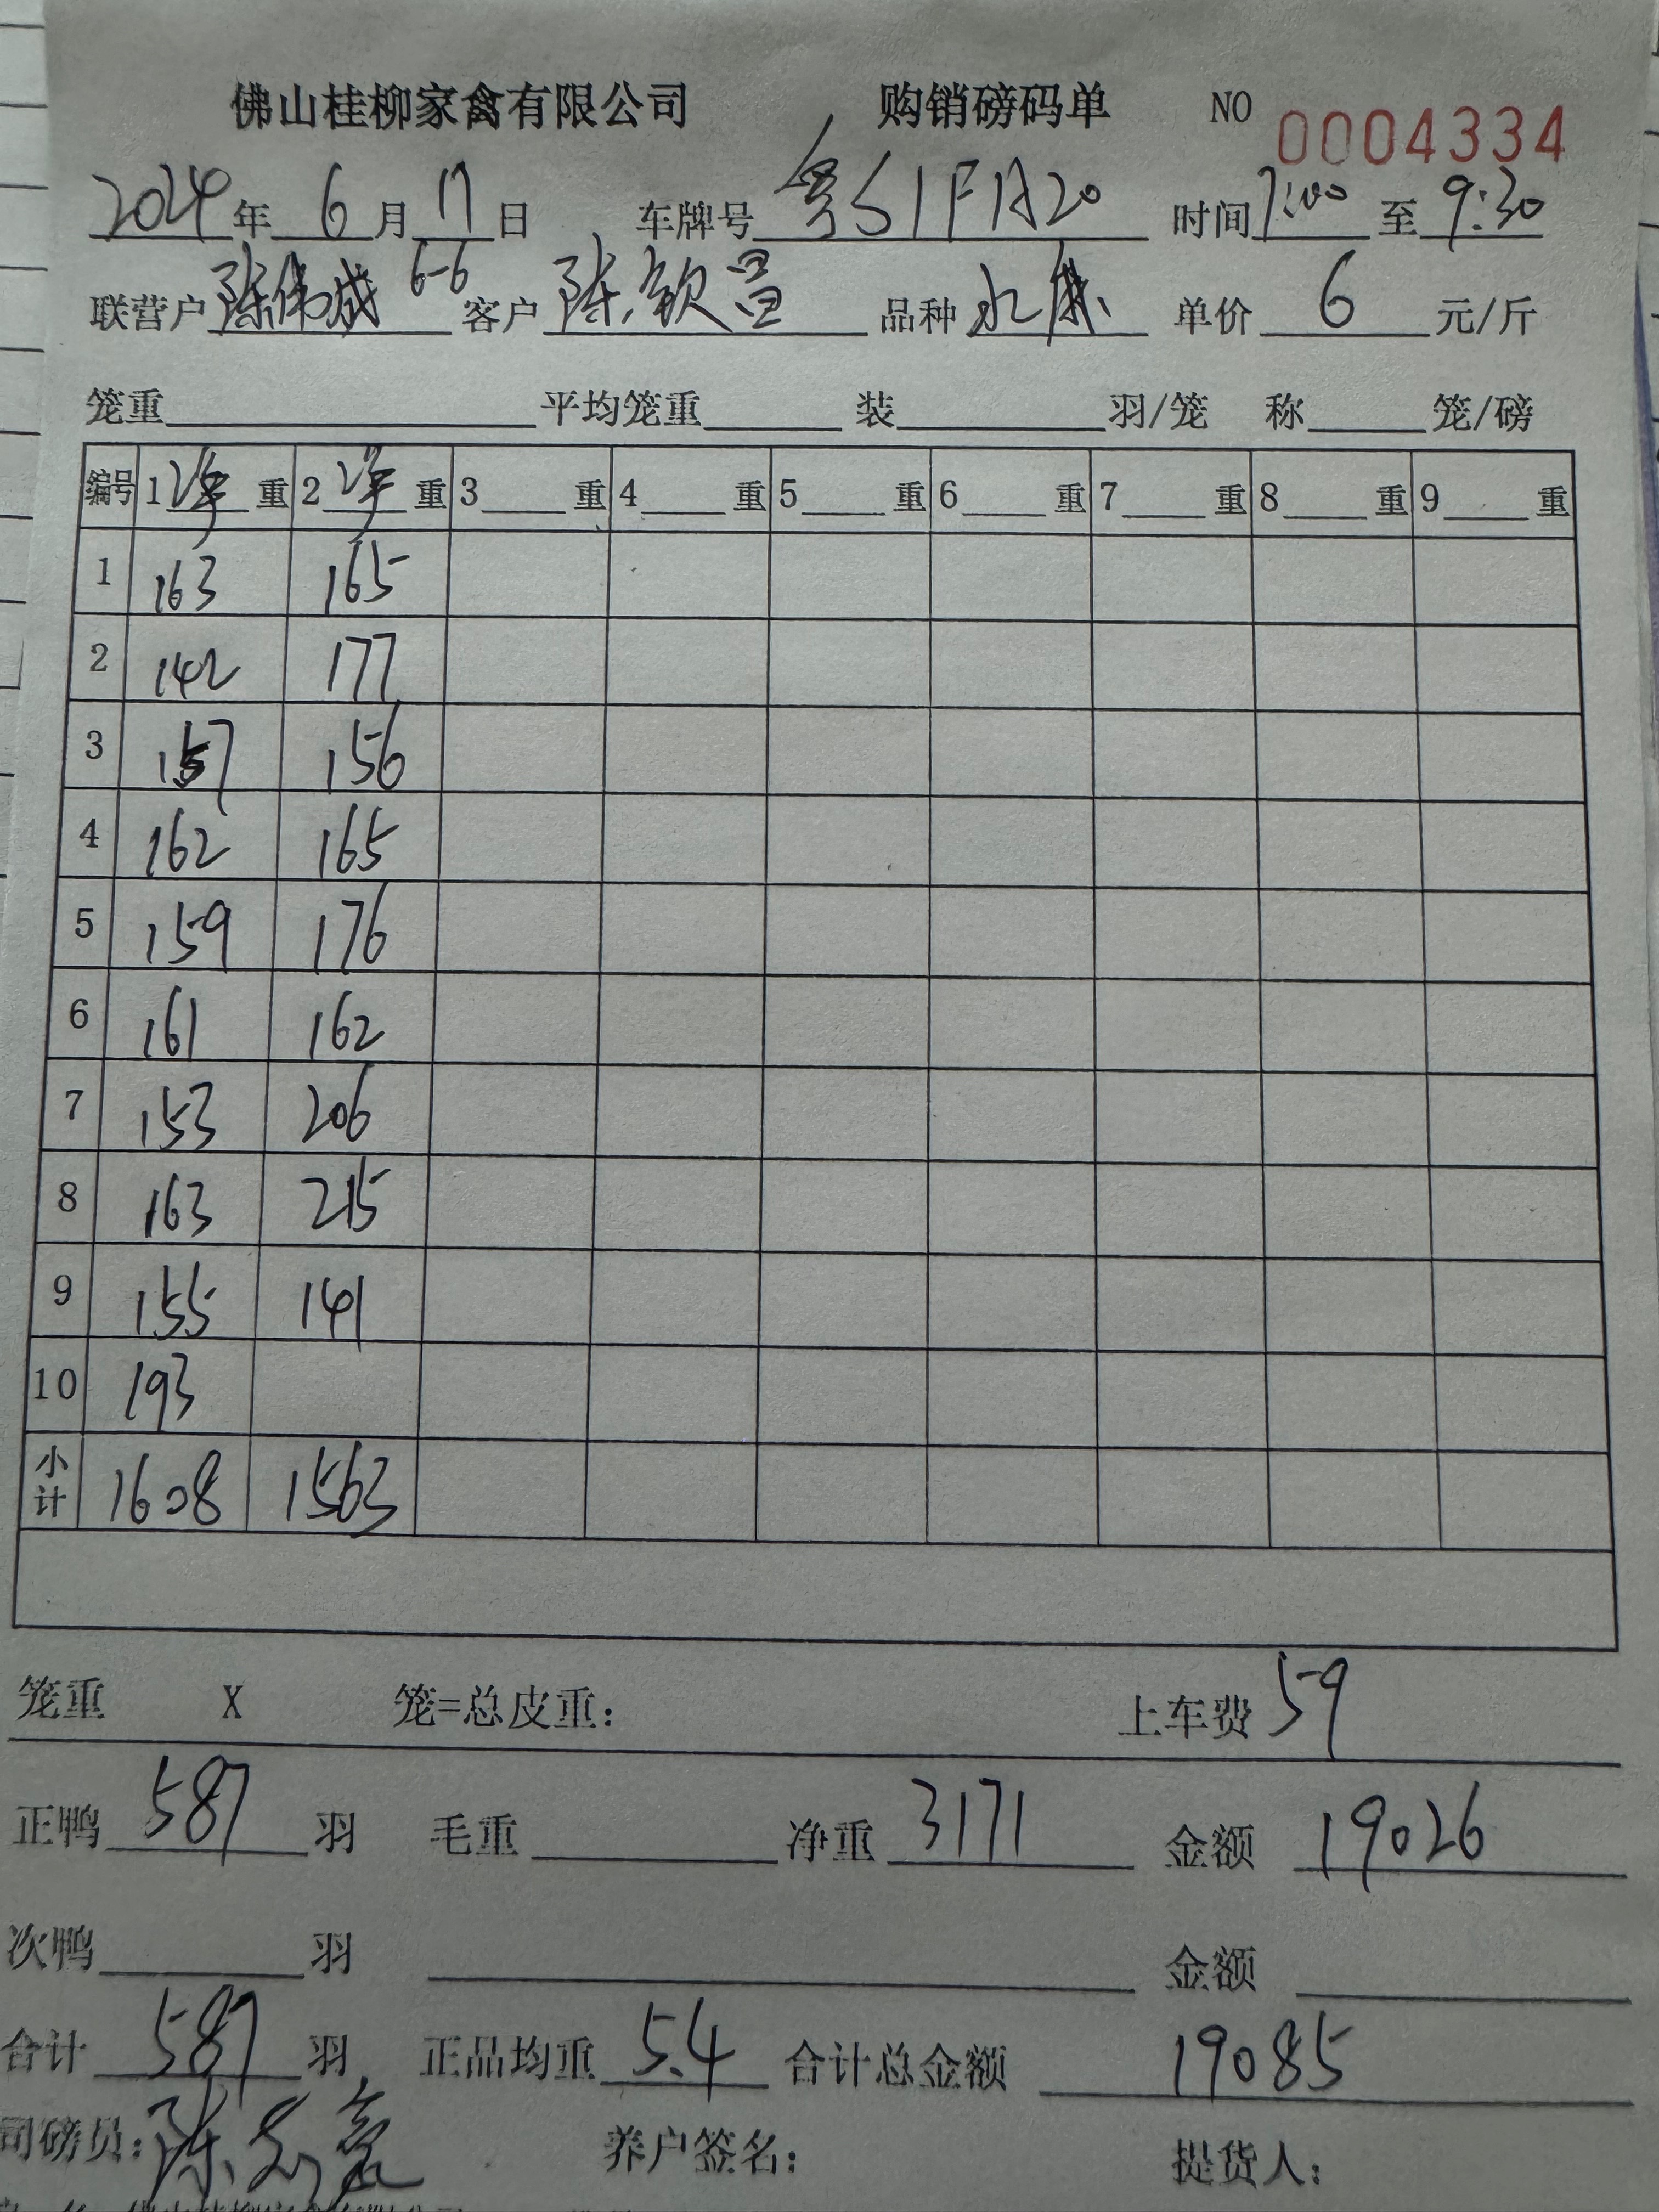 佛山桂柳家禽有限公司 购销磅码单 NO 0004334
2024年 6月 17日 车牌号 粤S1FA20 时间 7:00 至 9:30
联营户 陈伟成 6-6 客户 陈 品种 单价 6 元/斤
笼重 平均笼重 装 羽/笼 称 笼/磅
编号 1 重 2 重 3 重 4 重 5 重 6 重 7 重 8 重 9 重
1 163 165
2 142 177
3 157 156
4 162 165
5 159 176
6 161 162
7 153 206
8 163 215
9 155 141
10 193
小计 1608 1563
笼重 X 笼=总皮重: 上车费 59
正鸭 587 羽 毛重 净重 3171 金额 19026
次鸭 羽 金额
合计 587 羽 正品均重 5.4 合计总金额 19085
司磅员: 陈 养户签名: 提货人: